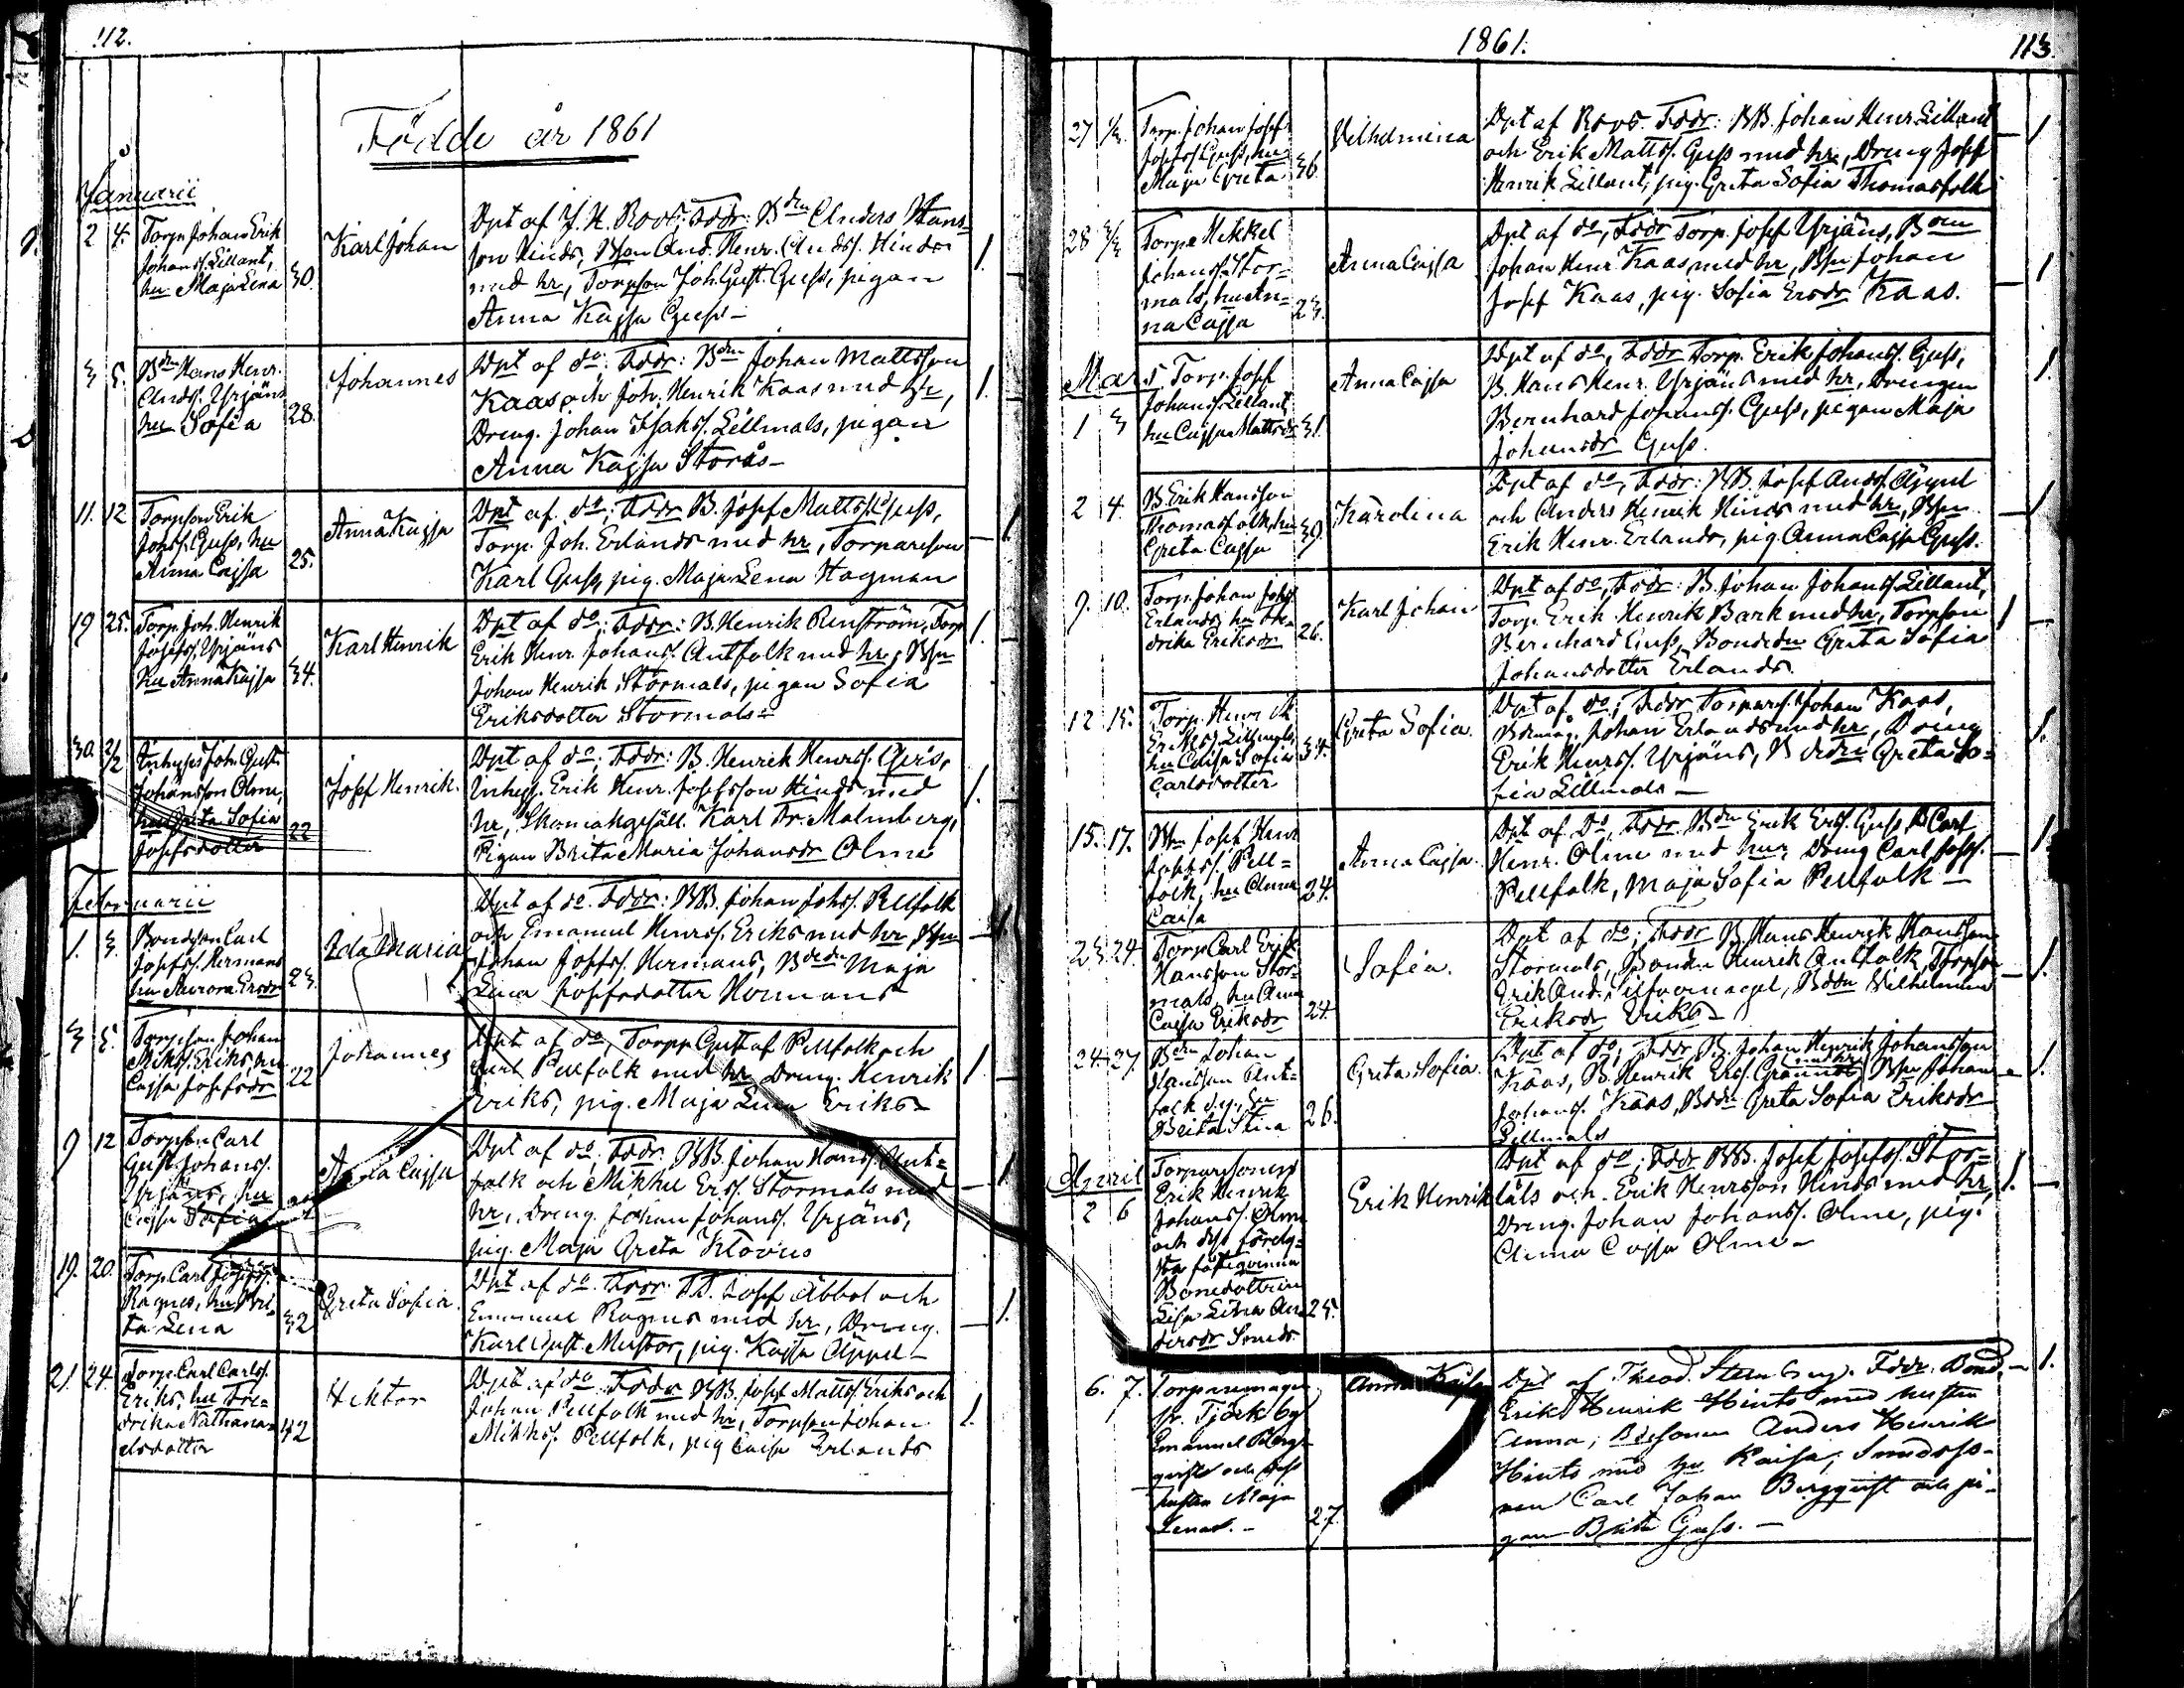 112.
Födde år 1861
Januarii
2 4. Torp. Johan Erik
Johanss. Lillant,
hu Maja Lena 30.
Karl Johan
Dpt af J. H. Roos; Fddr: Bdn Anders Hans-
son Hinds, Bson And. Henr. Andss. Hinds
med hr, Torpson Joh. Gust. Guss, pigan
Anna Kajsa Guss –
1.
3 5. Bdn Hans Henr.
Andss. Yrjäns
hu Sofia 28.
Johannes
Dpt af do: Fddr: Bdn Johan Mattsson
Kaas och Joh. Henrik Kaas med hr,
Dreng. Johan Isakss. Lillmals, pigan
Anna Kajsa Storås –
1.
11. 12 Torpson Erik
Johss. Guss, hu
Anna Cajsa 25.
Anna Kajsa
Dpt af do: Fddr B. Josef Mattss. Guss,
Torp. Joh. Erlands med hr, Torpareson
Karl Guss, pig. Maja Lena Hagman
1
19 25. Torp. Joh. Henrik
Josefss. Yrjäns
hu Anna Kajsa 34.
Karl Henrik
Dpt af do: Fddr: B. Henrik Renström, Torp
Erik Henr. Johanss. Antfolk med hr, Bsn
Johan Henrik Stormals, pigan Sofia
Eriksdotter Stormals –
1.
30. 2/2 Inhyses Joh. Gust.
Johansson Olme,
hu Greta Sofia
Josefsdotter 22
Josef Henrik.
Dpt af do: Fddr: B. Henrik Henrss.
Inhys. Erik Henr. Josefsson Hinds med
hr, Skomak.gesäll. Karl Fr. Malmberg,
Pigan Brita Maria Johansdr Olme
1.
Februarii
1. 3. Bondeson Carl
Josefss. Hermans
hu Aurora Ersdr 23.
Ida Maria
Dpt af do. Fddr: BB. Johan Johss. Pellfolk
och Emanuel Henrss. Eriks med hr, Bsn
Johan Josefss. Hermans, Bdedn Maja
Lena Josefsdotter Hermans
1
3 5. Torpson Johan
Mikss. Eriks, hu
Cajsa Josefsdr 22
Johannes
Dpt af do, Torpp Gustaf Pellfolk och
Pellfolk med hr, Dreng. Henrik
Eriks, pig. Maja Lena Eriks –
1.
9 12 Torpson Carl
Gust. Johanss.
Yrjäns, hu
Cajsa Sofia
Anna Cajsa
Dpt af do. Fddr. BB. Johan Hanss. Ant-
folk och Mikkel Erss. Stormals med
hr, Dreng. Johan Johanss. Yrjäns,
pig. Maja Greta Klovus
1
19. 20. Torp. Carl Josefss.
Ragnes, hu Bri-
ta Lena 32
Greta Sofia.
Dpt af do. Fddr: BB. Josef Abbol och
Emanuel Ragnes med hr, Dreng.
Karl Gust. Mustor, pig. Kajsa Appel –
1.
21. 24. Torp. Carl Carlss.
Eriks, hu Fre-
drika Nathana-
elsdotter 42
Hektor
Dpt af do. Fddr BB. Josef Mattss. Eriks och
Johan Pellfolk med hr, Torpson Johan
Mikkss. Pellfolk, pig Caisa Erlands
1.
1861.
113.
27 1/3. Torp. Johan Josef
Josefss. Guss, hu
Maja Greta 36.
Vilhelmina
Dpt af Roos. Fddr: BB. Johan Henr. Lillant
och Erik Mattss. Guss med hr, Dreng Josef
Henrik Lillant, pig. Greta Sofia Thomasfolk
1.
28 3/3 Torpa Mikkel
Johanss. Stor-
mals, hu An-
na Cajsa 23.
Anna Cajsa
Dpt af do, Fddr Torp. Josef Yrjäns, Bdn
Johan Henr. Kaas med hr, Bsn Johan
Josef Kaas, pig. Sofia Ersdr Kaas.
1
Mars
1 3 Torp. Josef
Johanss. Lillant
hu Cajsa Mattsdr 31.
Anna Cajsa
Dpt af do, Fddr Torp. Erik Johanss. Guss,
B. Hans Henr. Yrjäns med hr, Drengen
Bernhard Johanss. Guss, pigan Maja
Johansdr Guss.
1.
2 4. B. Erik Hansson
Thomasfolk, hu
Greta Cajsa 39.
Karolina
Dpt af do, Fddr: BB. Josef Andss. Appel
och Anders Henrik Hinds med hr, Bsn
Erik Henr. Erlands, pig. Anna Cajsa Guss.
1
9. 10. Torp. Johan Johss.
Erlands, hu Fre-
drika Eriksdr 26.
Karl Johan
Dpt af do, Fddr: B. Johan Johanss. Lillant,
Torp. Erik Henrik Bark med hr, Torpson
Bernhard Guss, Bondedn Greta Sofia
Johansdotter Erlands
1
12 15. Torp. Henrik
Erikss. Lillmals
hu Caisa Sofia
Carlsdotter 34.
Greta Sofia.
Dpt af do; Fddr Torpares. Johan Kaas,
Johan Erlands med hr, Dreng
Erik Henrss. Yrjäns, Bdedn Greta So-
fia Lillmals –
1.
15. 17. Bsn Josef Henr
Josefss. Pell-
folk, hu Anna
Caisa 24.
Anna Cajsa.
Dpt af Do, Fddr. Bdn Erik Erss. Guss, B Carl
Henr. Olme med hur, Dreng Carl Josefs.
Pellfolk, Maja Sofia Pellfolk –
1.
23. 24. Torp Carl Erik
Hansson Stor-
mals, hu Anna
Cajsa Eriksdr 24.
Sofia.
Dpt af do; Fddr B. Hans Henrik Hansson
Stormals, Bonden Henrik Antfolk, Torpson
Erik And. Silfvernagel, Bddn Wilhelmina
Eriksdr Eriks –
1.
24. 27. Bdn Johan
Hansson Ant-
folk d.y., hu
Brita Stina 26.
Greta Sofia.
Dpt af do; Fddr B. Johan Henrik Johansson
Kaas, B. Henrik Ers. med hr, Bsn Johan
Johanss. Kaas, Bddn Greta Sofia Eriksdr
Lillmals
1.
April
2 6 Torparsonen
Erik Henrik
Johanss. Olme
och dess föreg-
sta fästeqvinna
Bonedottren
Lisa Lena An-
dersdr Smeds 25.
Erik Henrik
Dpt af do; Fddr BB. Josef Josefss. Stor-
låls och Erik Henrsson Hinds med hr,
Dreng. Johan Johanss. Olme, pig.
Anna Cajsa Olme –
1.
6. 7. Torparemågen
fr. Tjöck by
Emanuel Berg-
qvist och dess
hustru Maja
Lena. – 27.
Anna Kajsa
Dpt af Theod. Stenberg. Fddr. Bond.
Erik Henrik Hints med hustru
Anna; Bdesonen Anders Henrik
Hints med hu Kaisa, Smedsso-
nen Carl Johan Bergqvist och pi-
gan Brita Guss. –
1.